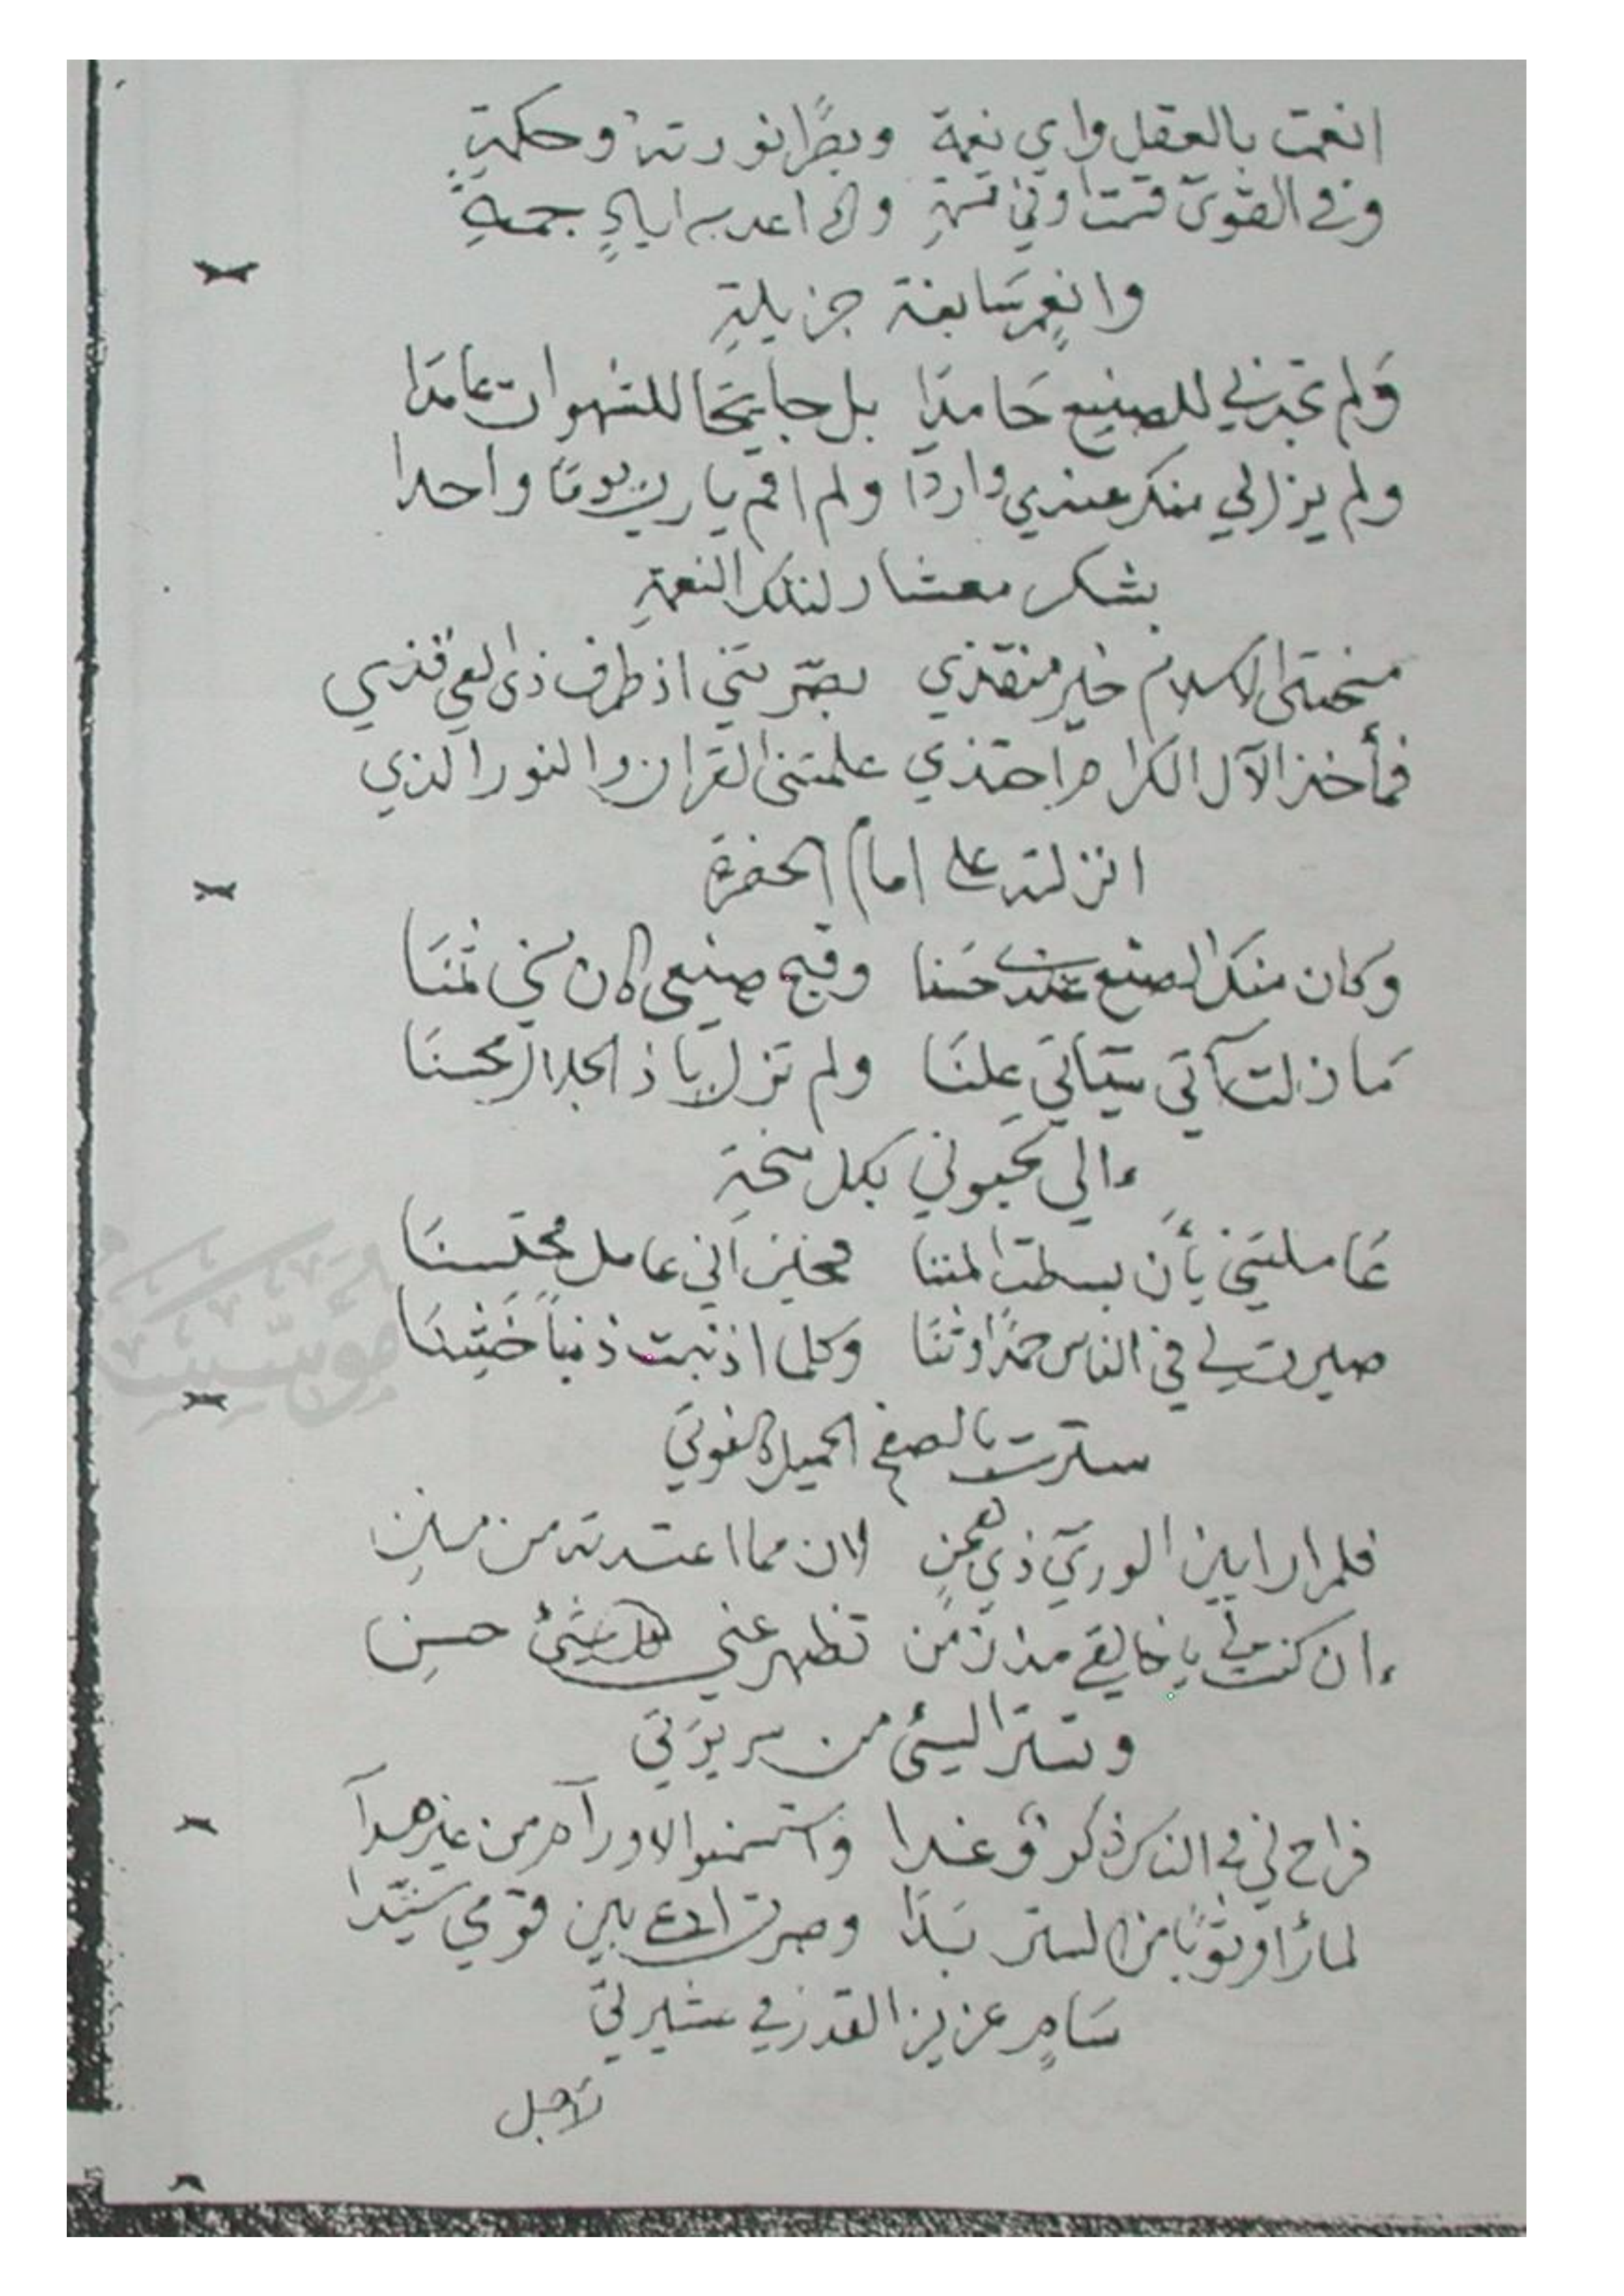 انعمت بالعقل واي نعمة وبصرا نورته وحكمة
وفي القوى قمت اوفي قسمة واعد به اياد جمة
وانعم سابغة جزيلة
ولم تجدني للصنيع حامدا بل جامحا للشهوات عامدا
ولم يزل لي منك عندي واردا ولم اقم يارب يوما واحدا
بشكر معشار لتلك النعمة
منحتني الاسلام خير منقذي بصرتني اذ طرف ذي العي قذي
فمأخذ الآل الكرام احتذي علمتني القران والنور الذي
انزلته على امام الحضرة
وكان منك الصنع عندي حسنا وقبح صنعي كان لي ثمنا
ما زلت آتي سيئاتي علنا ولم تزل يا ذا الجلال محسنا
الي تحبوني بكل منحة
عاملتني بأن بسطت المننا فخلن اني عامل محسنا
صيرت لي في الناس حمدا وثنا وكلما اذنبت ذنبا خشنا
سترت بالصفح الجميل هفوتي
فلم ار ا بين الوري ذي محن لان مما اعتدته من منن
ان كنت لي يا خالقي مذ زمن تظهر عني كل شيئ حسن
وتستر السيئ من سريرتي
فراح لي في الناس ذكر وغدا واستسمنوا الاورام من غير هدا
لما رأوا ثوبا من الستر بدا وصرت ادعى بين قومي سيدا
سام عزيز القدر في عشيرتي
لاجل
مؤسسة